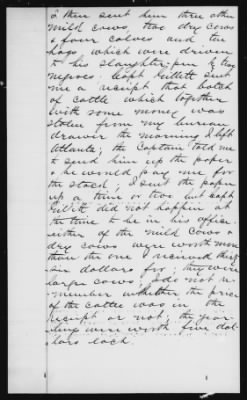 I then sent him three other
mild cows two dry cows
& four calves and ten
hogs, which were driven
to his slaughter pen by two
negroes; Capt Gillett sent
me a receipt that batch
of cattle which together
with some money was
stolen from my bureau
drawer the morning I left
Atlanta; the Captain told me
to send him up the paper
& he would pay me for
the stock; I sent the paper
up a time or two but Capt
Gillett did not happen at
the time to be in his office.
either of the milk cows &
dry cows were worth more
than the one I received thirty
six dollars for; they were
large cows; I do not re-
member whether the price
of the cattle was in the
receipt or not; the year-
lings were worth five dol-
lars each.